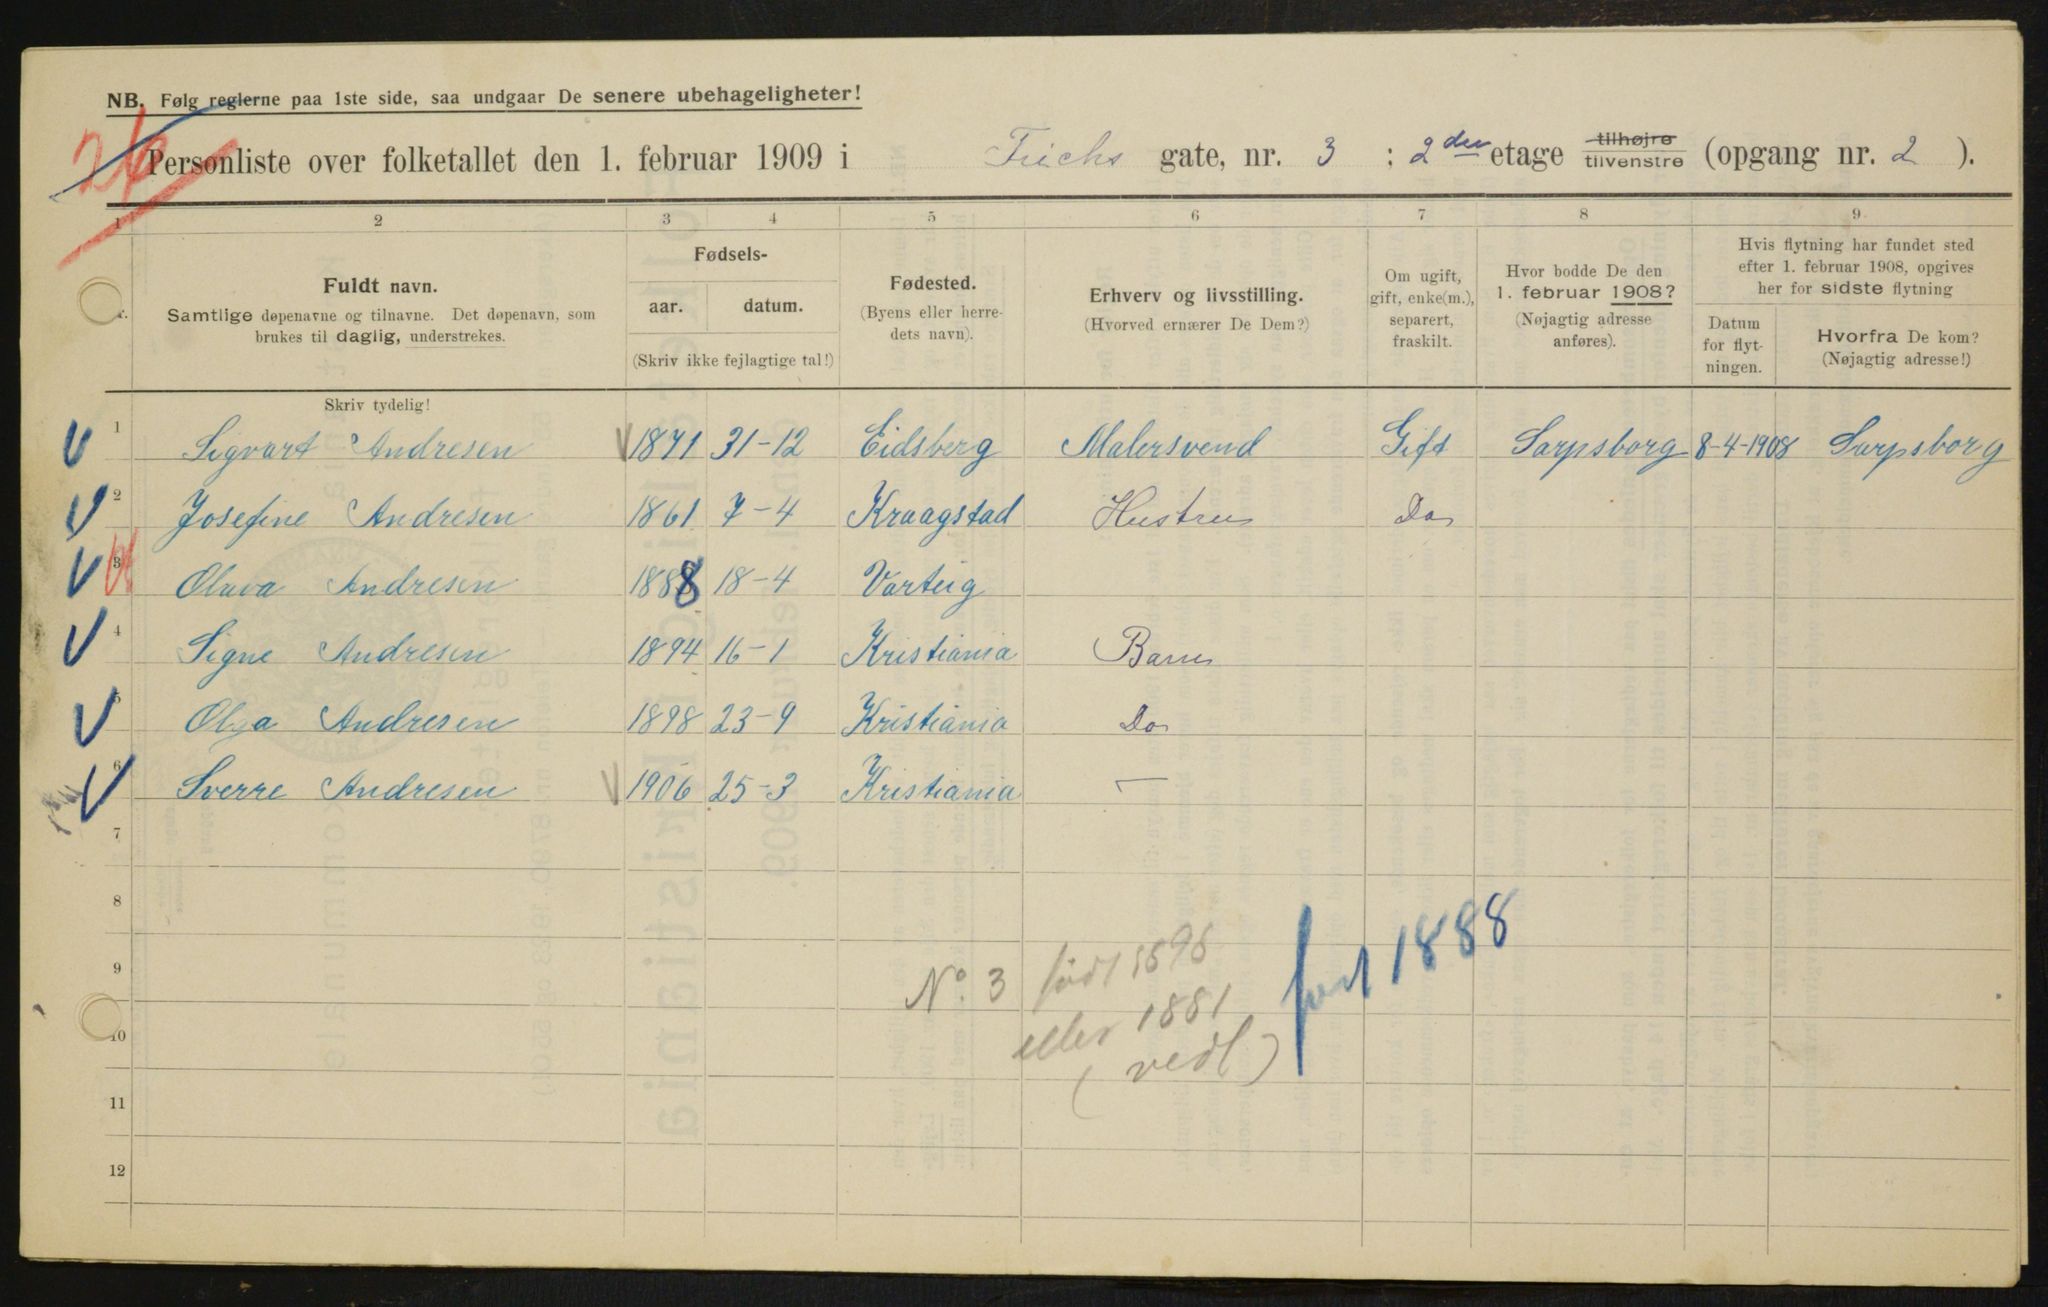 NB. Følg reglerne paa 1ste side, saa undgaar De senere ubehageligheter!
Personliste over folketallet den 1. februar 1909 i Frichs gate, nr. 3 ; 2den etage tilhøjre tilvenstre (opgang nr. 2 ).
1 2 3 4 5 6 7 8 9
Fuldt navn.
Samtlige døpenavne og tilnavne. Det døpenavn, som
brukes til daglig, understrekes.
Fødsels-
aar. datum.
(Skriv ikke fejlagtige tal!)
Fødested.
(Byens eller herre-
dets navn).
Erhverv og livsstilling.
(Hvorved ernærer De Dem?)
Om ugift,
gift, enke(m.),
separert,
fraskilt.
Hvor bodde De den
1. februar 1908?
(Nøjagtig adresse
anføres).
Hvis flytning har fundet sted
efter 1. februar 1908, opgives
her for sidste flytning
Datum
for flyt-
ningen.
Hvorfra De kom?
(Nøjagtig adresse!)
Skriv tydelig!
1 Sigvart Andresen 1871 31-12 Eidsberg Malersvend Gift Sarpsborg 8-4-1908 Sarpsborg
2 Josefine Andresen 1861 7-4 Kraagstad Hustru Do
3 Olava Andresen 1888 18-4 Varteig
4 Signe Andresen 1894 16-1 Kristiania Barn
5 Olga Andresen 1898 23-9 Kristiania Do
6 Sverre Andresen 1906 25-3 Kristiania —
7
8
9
10
11
12
No. 3 født 1898
eller 1881
(vedl)
født 1888